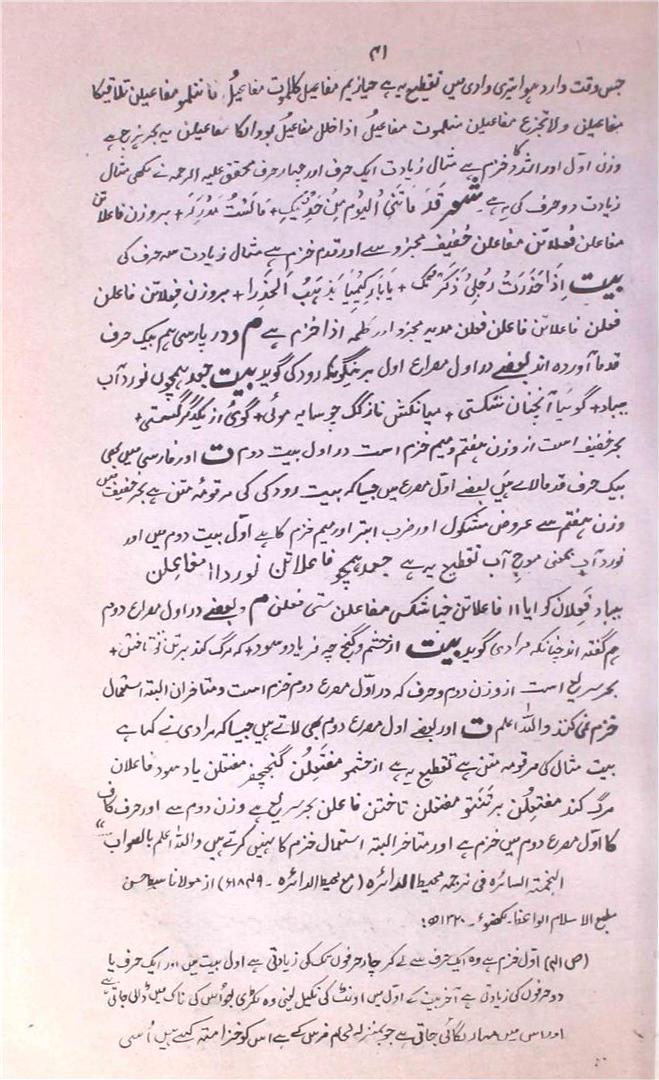 ۴۱
جس وقت وارد ہوا تیری وادی میں تقطیع یہ ہے حیازیم مفاعیل کالموت مفاعیلُ فانلمو مفاعیلن تلاقیکا
مفاعیلن ولاتجزع مفاعیلن منلموت مفاعیلُ اذاحلل مفاعیلُ بووالکا مفاعیلن یہ بحر ہزج ہے
وزن اول اور اشدد خزم ہے مثال زیادت ایک حرف اور چہار حرف محقق علیہ الرحمہ نے لکھی مثال
زیادت دو حرف کی یہ ہے شعر بروزن فاعلاتن
مفاعلن فعلاتن مفاعلن خفیف مجزو سے اور قدم خزم ہے مثال زیادت سہ حرف کی
بیت اذا خدرت رجلی ذکرتک + بروزن فعلاتن فاعلن
فعلن فاعلاتن فاعلن فعلن مدید مجزو اور کلمہ اذا خزم ہے م و در پارسی ہم بیک حرف
قدما آوردہ اند بعضے در اول مصراع اول ہر چنانکہ رودکی گوید بیت جعد ہمچون نورد آب
بباد + گوئیا آنچنان شکستی + میانکش نازکک چو سایہ موئی + گوئی از یکدگر گسستی +
بحر خفیف است از وزن ہفتم و میم خزم است در اول بیت دوم ت اور فارسی میں بھی
بیک حرف قدما لائے ہیں بعضے اول مصرع میں جیسا کہ بیت رودکی کی مرقومۂ متن ہے بحر خفیف میں
وزن ہفتم سے عروض مشکول اور ضرب ابتر اور میم خزم کا ہے اول بیت دوم میں اور
نورد آب بمعنی موج آب تقطیع یہ ہے جعد ہمچو فاعلاتن نوردا ا مفاعلن
بباد فعلان کو ایا اا فاعلاتن خیا شکس مفاعلن ستی فعلن م و بعضے در اول مصراع دوم
ہم گفتہ اند چنانکہ مرادی گوید بیت از حشم و گنج چہ فریاد و سود + کہ مرگ کند بر تن تو تاختن +
بحر سریع است از وزن دوم و حرف کہ در اول مصرع دوم خزم است و متاخران البتہ استعمال
خزم نمی کنند واللہ اعلم ت اور بعضے اول مصرع دوم بھی لاتے ہیں جیسا کہ مرادی نے کہا ہے
بیت مثال کی مرقومہ متن ہے تقطیع یہ ہے از حشمو مفتعلن گنجچفر مفتعلن یاد سود فاعلان
مرگ کند مفتعلن برتنتو مفتعلن تاختن فاعلن بحر سریع ہے وزن دوم سے اور حرف کاف
کا اول مصرع دوم میں خزم ہے اور متاخر البتہ استعمال خزم کا نہیں کرتے ہیں واللہ اعلم بالصواب“
النجمۃ السائرہ فی ترجمہ محیط الدائرہ (مع محیط الدائرہ - ۱۸۴۹ء) از مولانا سیدحسن
مطبع الاسلام الواعظ - لکھنوء - ۱۳۲۰ھ
(ص الم) اول خزم ہے وہ ایک حرف سے لے کر چار حرفوں تک کی زیادتی ہے اول بیت میں اور ایک حرف یا
دو حرفوں کی زیادتی ہے آخر بیت کے اول میں اونٹ کی نکیل یعنی وہ لکڑی جو اس کی ناک میں ڈالی جاتی ہے
اور اس میں مہار لگائی جاتی ہے جو بمنزلہ لجام فرس کے ہے اس کو خزامتہ کہتے ہیں اسی